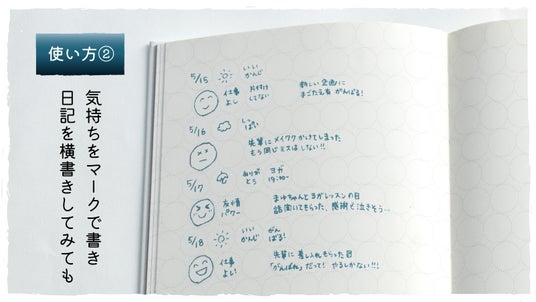 使い方②
気持ちをマークで書き
日記を横書きしてみても
5/15
いい
かんじ
仕事
よし
片付け
してない
新しい企画に
まごた元有 がんばる!
5/16
しっ
ぱい
先輩にメイワクかけてしまった
もう同じミスはしない!!
5/17
ありが
とう
ヨガ
19:30~
友情
パワー
まゆちゃんとヨガレッスンの日
話聞いてもらった、感謝で泣きそう…
5/18
いい
かんじ
がん
ばる!
仕事
よし!
先輩に差し入れもらった日
「がんばれ」だって! やるしかない!!!